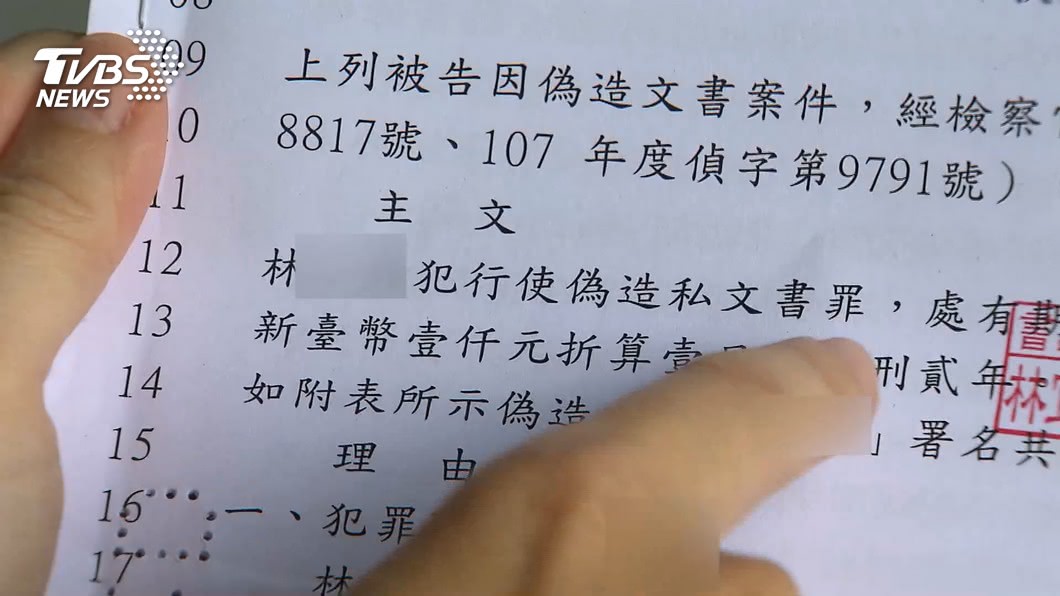 TVBS
NEWS
08
09 上列被告因偽造文書案件，經檢察
10 8817號、107 年度偵字第9791號）
11 主 文
12 林 犯行使偽造私文書罪，處有期
13 新臺幣壹仟元折算壹日 刑貳年。
14 如附表所示偽造 」署名共
15 理 由
16 一、犯罪
17 林
書
林